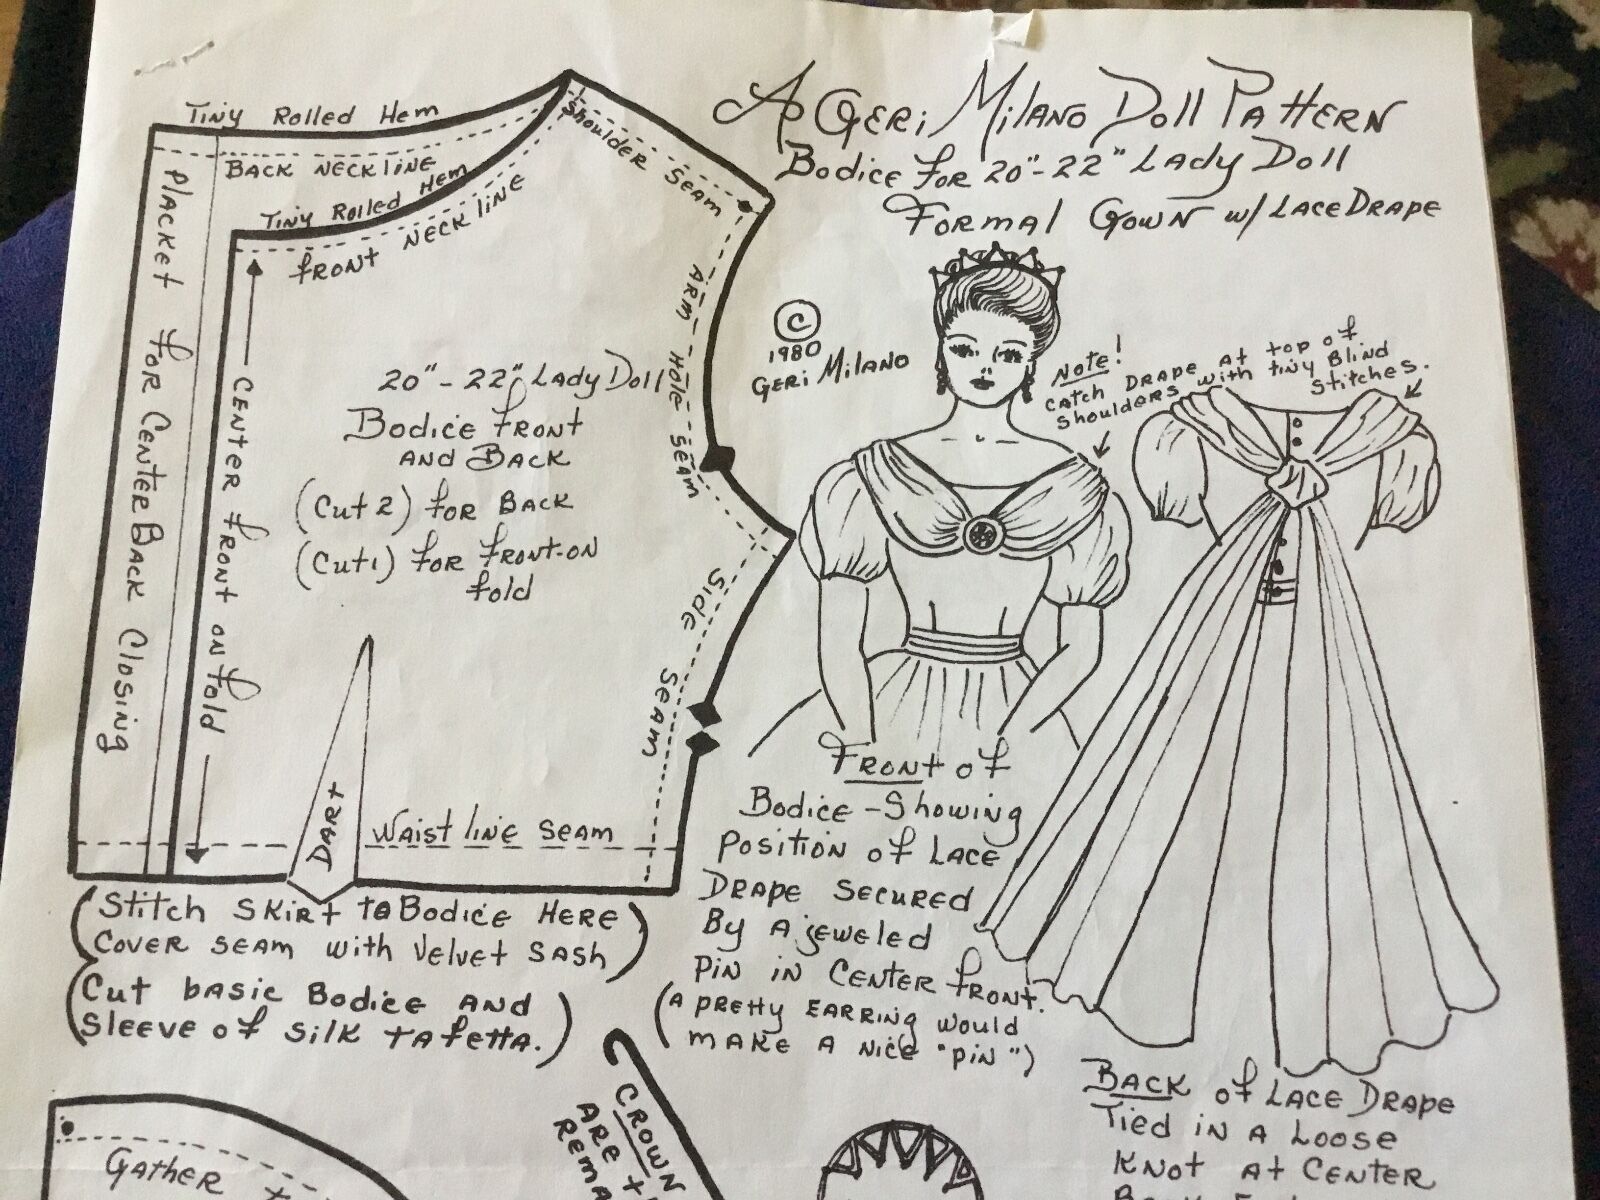 A Geri Milano Doll Pattern
Bodice for 20"-22" Lady Doll
Formal Gown w/ Lace Drape
Tiny Rolled Hem
Back Neckline
Tiny Rolled Hem
Front Neck line
Shoulder Seam
Arm Hole Seam
Side Seam
Placket for Center Back Closing
Center front on fold
20"-22" Lady Doll
Bodice Front
and Back
(Cut 2) for Back
(Cut 1) for Front-on
fold
Dart
Waist line Seam
(Stitch Skirt to Bodice Here
Cover seam with Velvet Sash)
(Cut basic Bodice and
Sleeve of silk tafetta.)
© 
1980
Geri Milano
Note!
Catch Drape at top of
Shoulders with tiny Blind
Stitches.
Front of
Bodice - Showing
Position of Lace
Drape secured
By a jeweled
Pin in Center front.
(A pretty earring would
make a nice "pin")
Back of Lace Drape
Tied in a Loose
Knot at Center
Gather
Crown
are